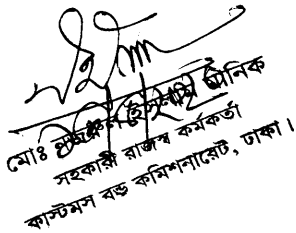 মোঃ নজরুল ইসলাম মানিক
সহকারী রাজস্ব কর্মকর্তা
কাস্টমস বন্ড কমিশনারেট, ঢাকা।